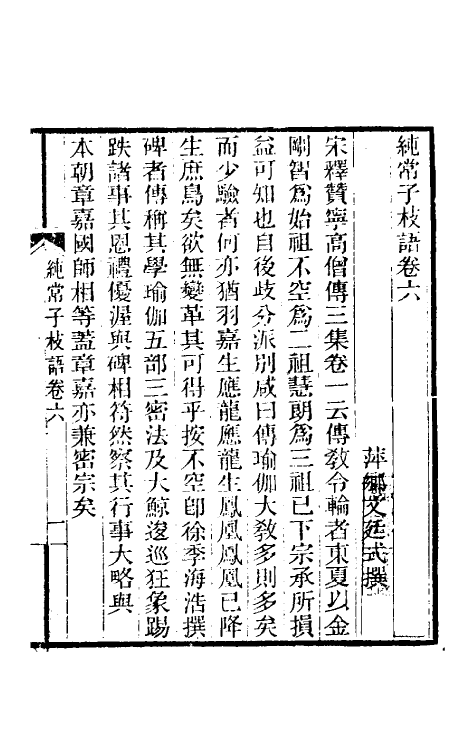 純常子枝語卷六
萍鄉文廷式撰
宋釋贊寧高僧傳三集卷一云傳教令輪者東夏以金
剛智爲始祖不空爲二祖慧朗爲三祖已下宗承所損
益可知也自後歧分派別咸曰傳瑜伽大教多則多矣
而少驗者何亦猶羽嘉生應龍應龍生鳳凰鳳凰已降
生庶鳥矣欲無變革其可得乎按不空卽徐季海浩撰
碑者傳稱其學瑜伽五部三密法及大鯨逡巡狂象踢
跌諸事其恩禮優渥與碑相符然察其行事大略與
本朝章嘉國師相等蓋章嘉亦兼密宗矣
純常子枝語卷六
一